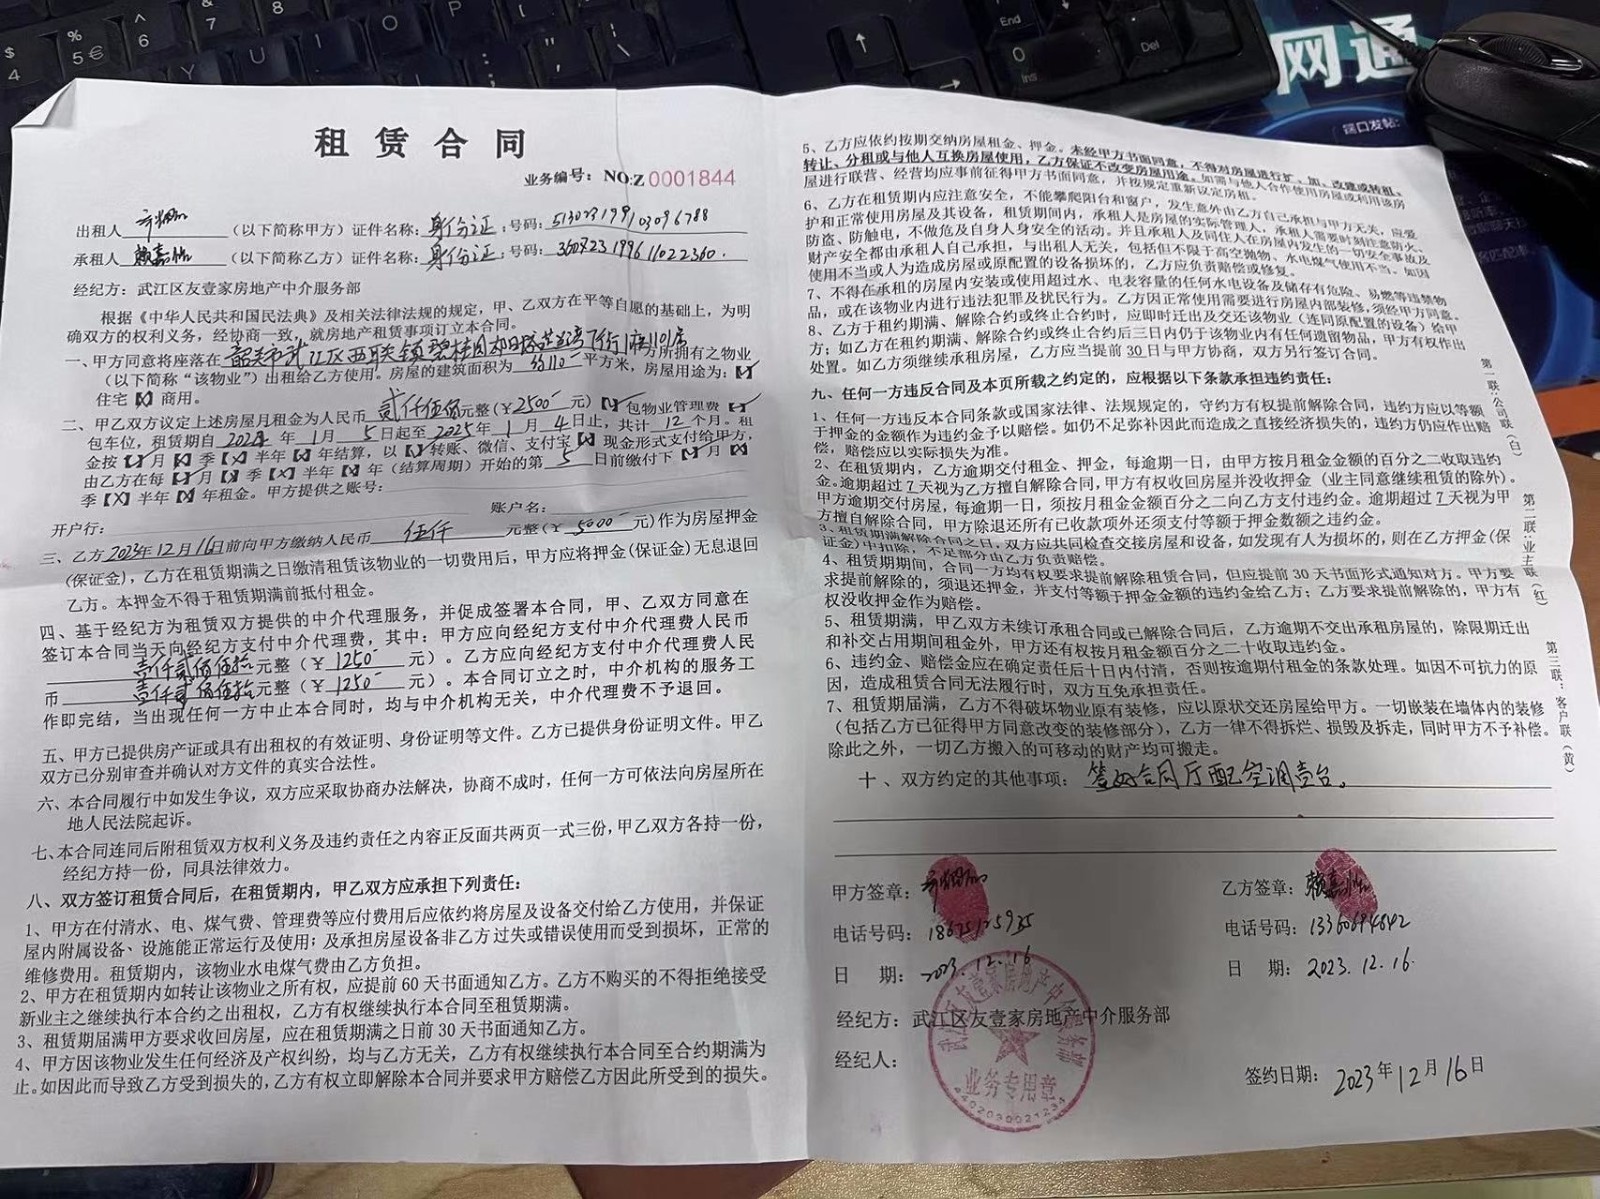 网通
端口发帖:
租赁合同
业务编号: NO:Z 0001844
出租人 （以下简称甲方）证件名称: 身份证 ; 号码: 513023199103096788
承租人 赖嘉怡 （以下简称乙方）证件名称: 身份证 ; 号码:
经纪方: 武江区友壹家房地产中介服务部
根据《中华人民共和国民法典》及相关法律法规的规定，甲、乙双方在平等自愿的基础上，为明
确双方的权利义务，经协商一致，就房地产租赁事项订立本合同。
一、甲方同意将座落在 韶关市武江区西联镇碧桂园 甲方所拥有之物业
（以下简称“该物业”）出租给乙方使用。房屋的建筑面积为 约110 平方米，房屋用途为:【✓】
住宅【X】商用。
二、甲乙双方议定上述房屋月租金为人民币 贰仟伍佰 元整（¥ 2500 元）【✓】包物业管理费【✓】
包车位，租赁期自 2024 年 1 月 5 日起至 2025 年 1 月 4 日止，共计 12 个月。租
金按【✓】月【X】季【X】半年【X】年结算，以【✓】转账、微信、支付宝【X】现金形式支付给甲方，
由乙方在每【✓】月【X】季【X】半年【X】年（结算周期）开始的第 5 日前缴付下【✓】月【X】
季【X】半年【X】年租金。甲方提供之账号:
开户行: 账户名:
三、乙方 2023年12月16日前向甲方缴纳人民币 伍仟 元整（¥ 5000 元）作为房屋押金
(保证金)，乙方在租赁期满之日缴清租赁该物业的一切费用后，甲方应将押金(保证金)无息退回
乙方。本押金不得于租赁期满前抵付租金。
四、基于经纪方为租赁双方提供的中介代理服务，并促成签署本合同，甲、乙双方同意在
签订本合同当天向经纪方支付中介代理费，其中: 甲方应向经纪方支付中介代理费人民币
壹仟贰佰伍拾 元整（¥ 1250 元）。乙方应向经纪方支付中介代理费人民
币 壹仟贰佰伍拾 元整（¥ 1250 元）。本合同订立之时，中介机构的服务工
作即完结，当出现任何一方中止本合同时，均与中介机构无关，中介代理费不予退回。
五、甲方已提供房产证或具有出租权的有效证明、身份证明等文件。乙方已提供身份证明文件。甲乙
双方已分别审查并确认对方文件的真实合法性。
六、本合同履行中如发生争议，双方应采取协商办法解决，协商不成时，任何一方可依法向房屋所在
地人民法院起诉。
七、本合同连同后附租赁双方权利义务及违约责任之内容正反面共两页一式三份，甲乙双方各持一份，
经纪方持一份，同具法律效力。
八、双方签订租赁合同后，在租赁期内，甲乙双方应承担下列责任:
1、甲方在付清水、电、煤气费、管理费等应付费用后应依约将房屋及设备交付给乙方使用，并保证
屋内附属设备、设施能正常运行及使用; 及承担房屋设备非乙方过失或错误使用而受到损坏，正常的
维修费用。租赁期内，该物业水电煤气费由乙方负担。
2、甲方在租赁期内如转让该物业之所有权，应提前60天书面通知乙方。乙方不购买的不得拒绝接受
新业主之继续执行本合约之出租权，乙方有权继续执行本合同至租赁期满。
3、租赁期届满甲方要求收回房屋，应在租赁期满之日前30天书面通知乙方。
4、甲方因该物业发生任何经济及产权纠纷，均与乙方无关，乙方有权继续执行本合同至合约期满为
止。如因此而导致乙方受到损失的，乙方有权立即解除本合同并要求甲方赔偿乙方因此所受到的损失。
5、乙方应依约按期交纳房屋租金、押金。未经甲方书面同意，不得对房屋进行扩、加、改建或转租、
转让、分租或与他人互换房屋使用，乙方保证不改变房屋用途。如需与他人合作使用房屋或利用该房
屋进行联营、经营均应事前征得甲方书面同意，并按规定重新议定房租。
6、乙方在租赁期内应注意安全，不能攀爬阳台和窗户，发生意外由乙方自己承担与甲方无关，应爱
护和正常使用房屋及其设备，租赁期间内，承租人是房屋的实际管理人，承租人需要时刻注意防火、
防盗、防触电，不做危及自身人身安全的活动。并且承租人及同住人在房屋内发生的一切安全事故及
财产安全都由承租人自己承担，与出租人无关，包括但不限于高空抛物、水电煤气使用不当。如因
使用不当或人为造成房屋或原配置的设备损坏的，乙方应负责赔偿或修复。
7、不得在承租的房屋内安装或使用超过水、电表容量的任何水电设备及储存有危险、易燃等违禁物
品，或在该物业内进行违法犯罪及扰民行为。乙方因正常使用需要进行房屋内部装修，须经甲方同意。
8、乙方于租赁期满、解除合约或终止合约时，应即时迁出及交还该物业（连同原配置的设备）给甲
方; 如乙方在租赁期满、解除合约或终止合约后三日内仍于该物业内有任何遗留物品，甲方有权作出
处置。如乙方须继续承租房屋，乙方应当提前30日与甲方协商，双方另行签订合同。
九、任何一方违反合同及本页所载之约定的，应根据以下条款承担违约责任:
1、任何一方违反本合同条款或国家法律、法规规定的，守约方有权提前解除合同，违约方应以等额
于押金的金额作为违约金予以赔偿。如仍不足弥补因此而造成之直接经济损失的，违约方仍应作出赔
偿，赔偿应以实际损失为准。
2、在租赁期内，乙方逾期交付租金、押金，每逾期一日，由甲方按月租金金额的百分之二收取违约
金。逾期超过7天视为乙方擅自解除合同，甲方有权收回房屋并没收押金（业主同意继续租赁的除外）。
甲方逾期交付房屋，每逾期一日，须按月租金金额百分之二向乙方支付违约金。逾期超过7天视为甲
方擅自解除合同，甲方除退还所有已收款项外还须支付等额于押金数额之违约金。
3、租赁期满解除合同之日，双方应共同检查交接房屋和设备，如发现有人为损坏的，则在乙方押金(保
证金)中扣除，不足部分由乙方负责赔偿。
4、租赁期期间，合同一方均有权要求提前解除租赁合同，但应提前30天书面形式通知对方。甲方要
求提前解除的，须退还押金，并支付等额于押金金额的违约金给乙方; 乙方要求提前解除的，甲方有
权没收押金作为赔偿。
5、租赁期满，甲乙双方未续订承租合同或已解除合同后，乙方逾期不交出承租房屋的，除限期迁出
和补交占用期间租金外，甲方还有权按月租金额百分之二十收取违约金。
6、违约金、赔偿金应在确定责任后十日内付清，否则按逾期付租金的条款处理。如因不可抗力的原
因，造成租赁合同无法履行时，双方互免承担责任。
7、租赁期届满，乙方不得破坏物业原有装修，应以原状交还房屋给甲方。一切嵌装在墙体内的装修
（包括乙方已征得甲方同意改变的装修部分），乙方一律不得拆烂、损毁及拆走，同时甲方不予补偿。
除此之外，一切乙方搬入的可移动的财产均可搬走。
十、双方约定的其他事项: 签好合同厅配空调壹台。
甲方签章: 乙方签章: 赖嘉怡
电话号码: 电话号码:
日 期: 2023.12.16 日 期: 2023.12.16.
经纪方: 武江区友壹家房地产中介服务部
经纪人:
签约日期: 2023年12月16日
武江区友壹家房地产中介服务部
业务专用章
4402030021234
第一联:公司联（白）
第二联:业主联（红）
第三联:客户联（黄）